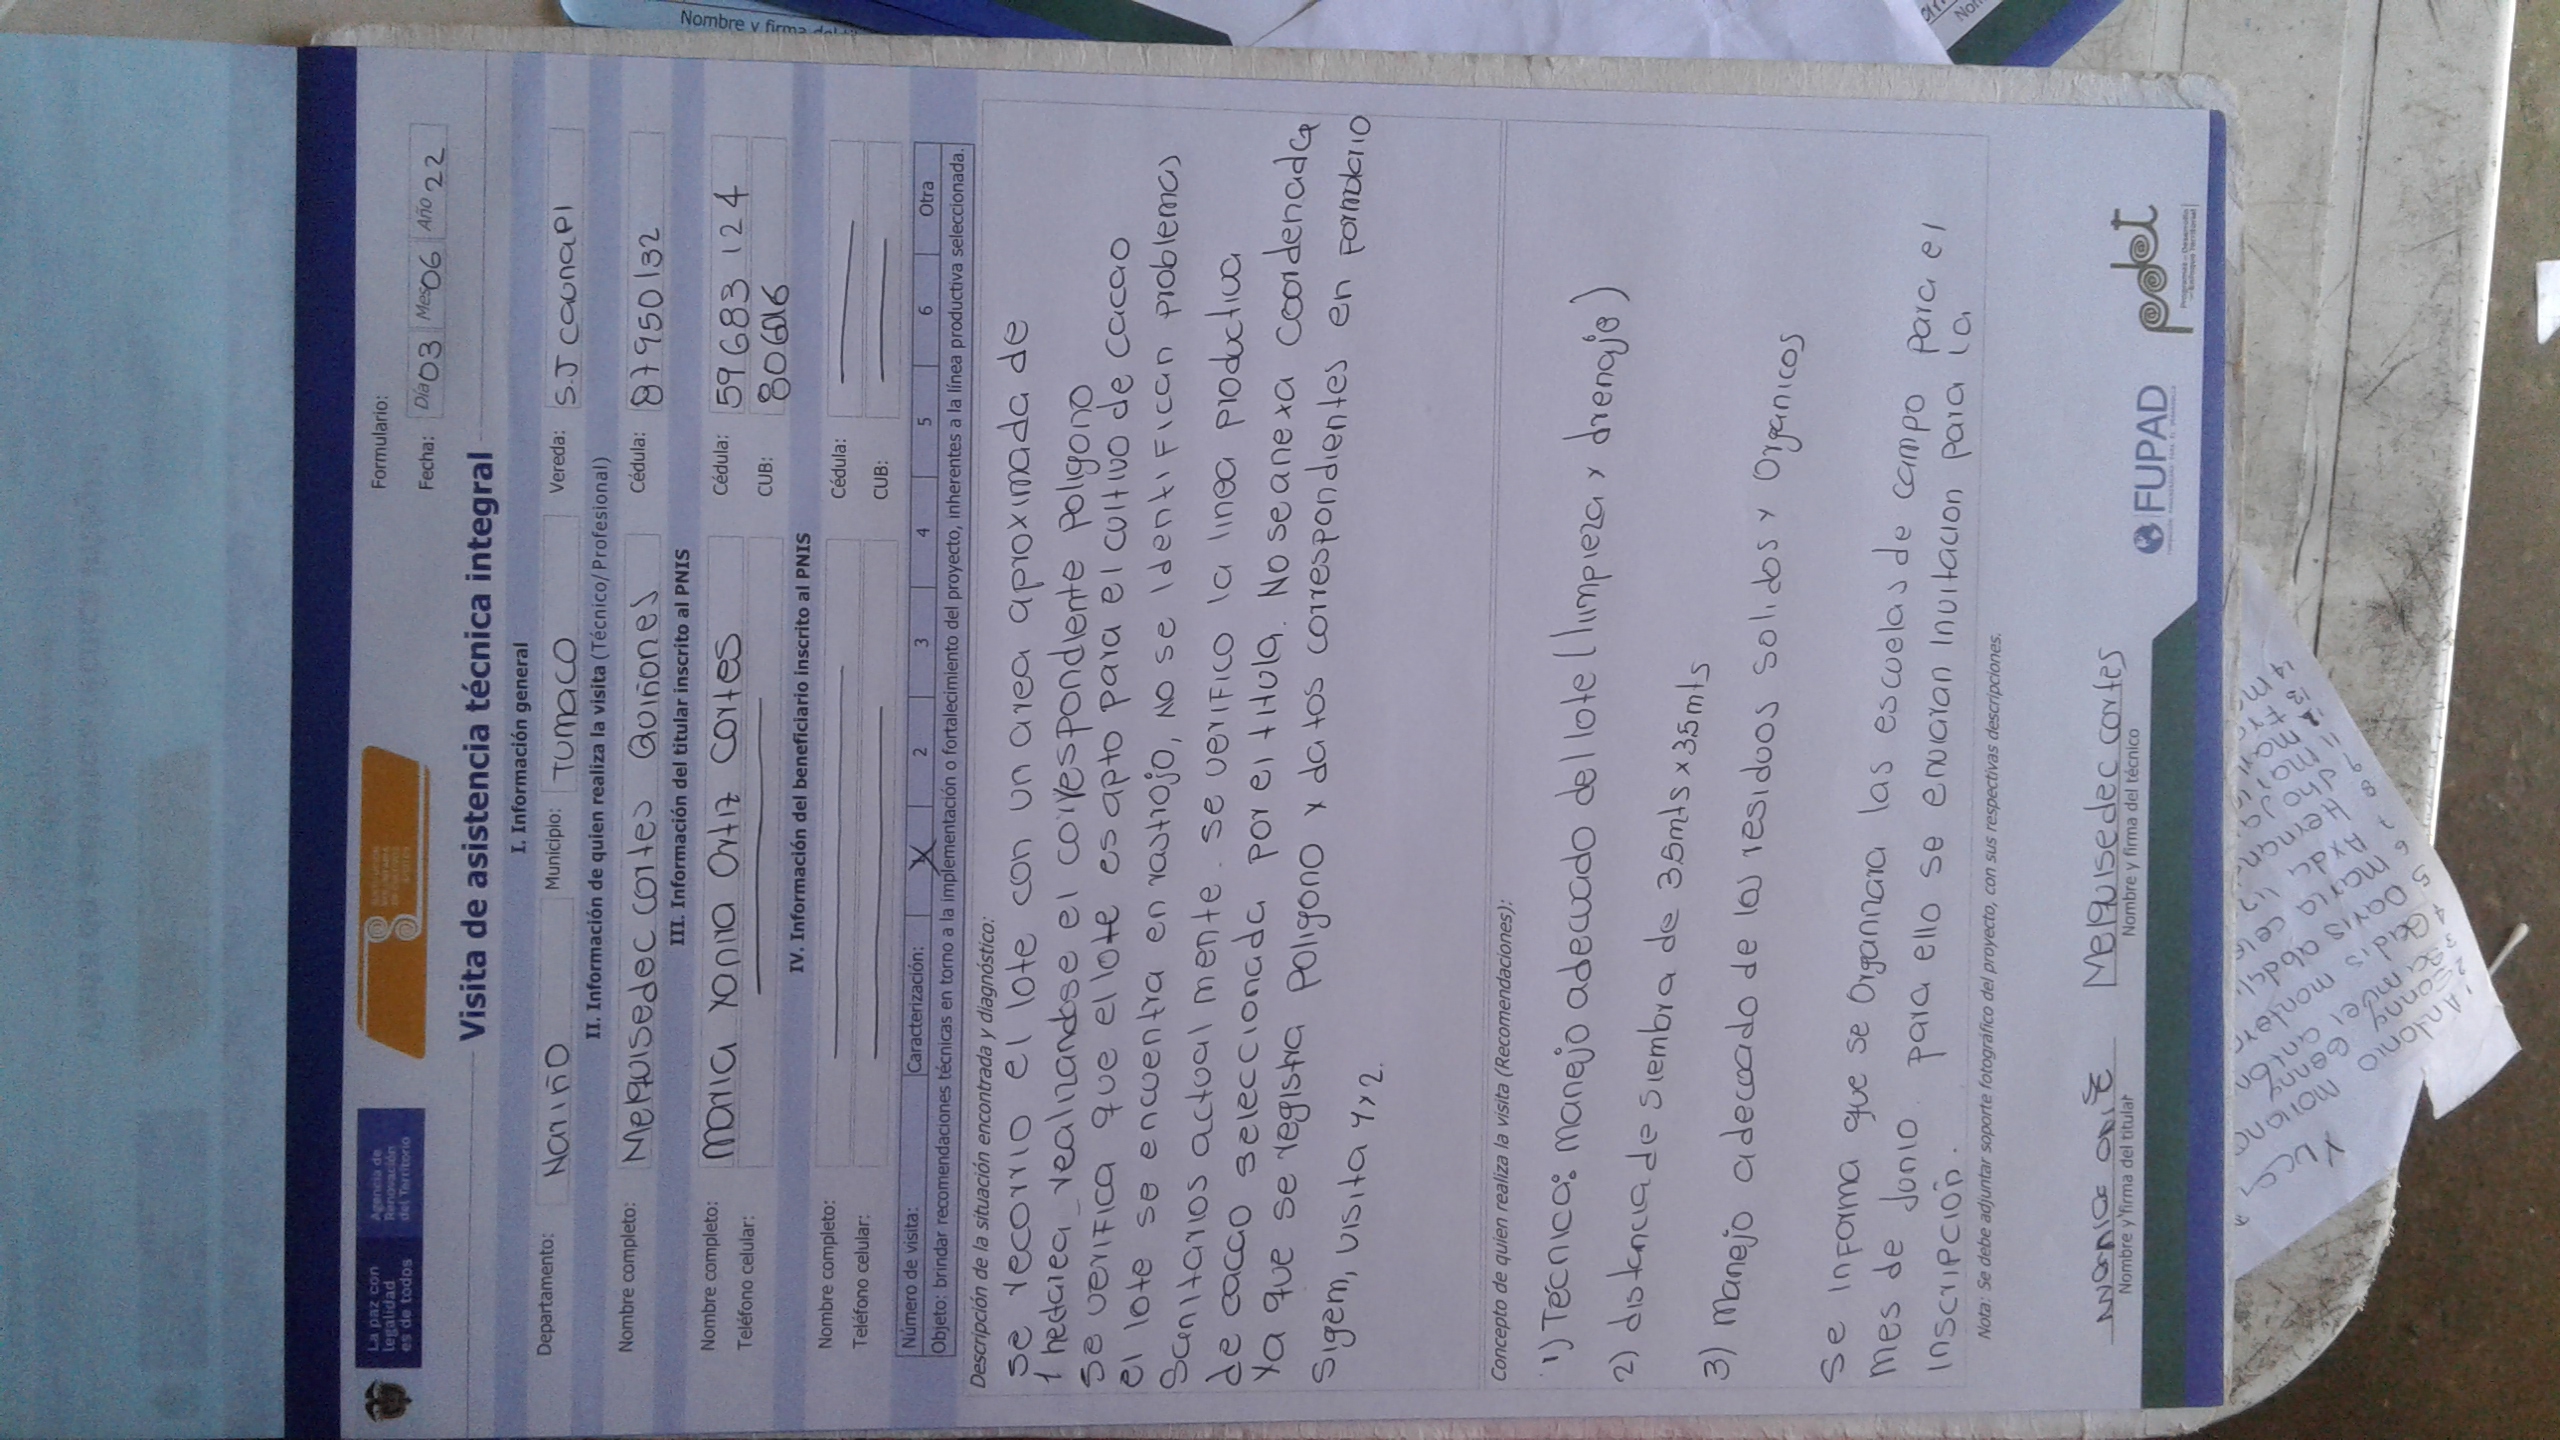 La paz con
legalidad
es de todos
Agencia de
Renovación
del Territorio
Formulario:
Fecha: Día 03 Mes 06 Año 22
Visita de asistencia técnica integral
I. Información general
Departamento: Nariño Municipio: Tumaco Vereda: S.J caunapi
II. Información de quien realiza la visita (Técnico/Profesional)
Nombre completo: Melquisedec cortes Quiñones Cédula: 87950132
III. Información del titular inscrito al PNIS
Nombre completo: Maria Yonira Ortiz Cortes Cédula: 59683124
Teléfono celular: CUB: 806016
IV. Información del beneficiario inscrito al PNIS
Nombre completo: Cédula:
Teléfono celular: CUB:
Número de visita: Caracterización: X 2 3 4 5 6 Otra
Objeto: brindar recomendaciones técnicas en torno a la implementación o fortalecimiento del proyecto, inherentes a la línea productiva seleccionada.
Descripción de la situación encontrada y diagnóstico:
se recorrio el lote con un area aproximada de
1 hectarea realizandose el correspondiente poligono
se verifica que el lote es apto para el cultivo de cacao
el lote se encuentra en rastrojo, no se identifican problemas
Sanitarios actual mente. se verifico la linea productiva
de cacao seleccionada por el titula. No se anexa coordenada
ya que se registra poligono y datos correspondientes en formulario
sigem, visita 1 y 2.
Concepto de quien realiza la visita (Recomendaciones):
1) Técnica: manejo adecuado del lote (limpieza y drenaje)
2) distancia de siembra de 3.5mts x 3.5mts
3) Manejo adecuado de los residuos solidos y Organicos
Se informa que se Organizara las escuelas de campo para el
mes de Junio. para ello se enviaran invitacion para la
Inscripción.
Nota: Se debe adjuntar soporte fotográfico del proyecto, con sus respectivas descripciones.
Melquisedec cortes
Nombre y firma del titular
Nombre y firma del técnico
FUPAD
pdet
Nombre y firma del